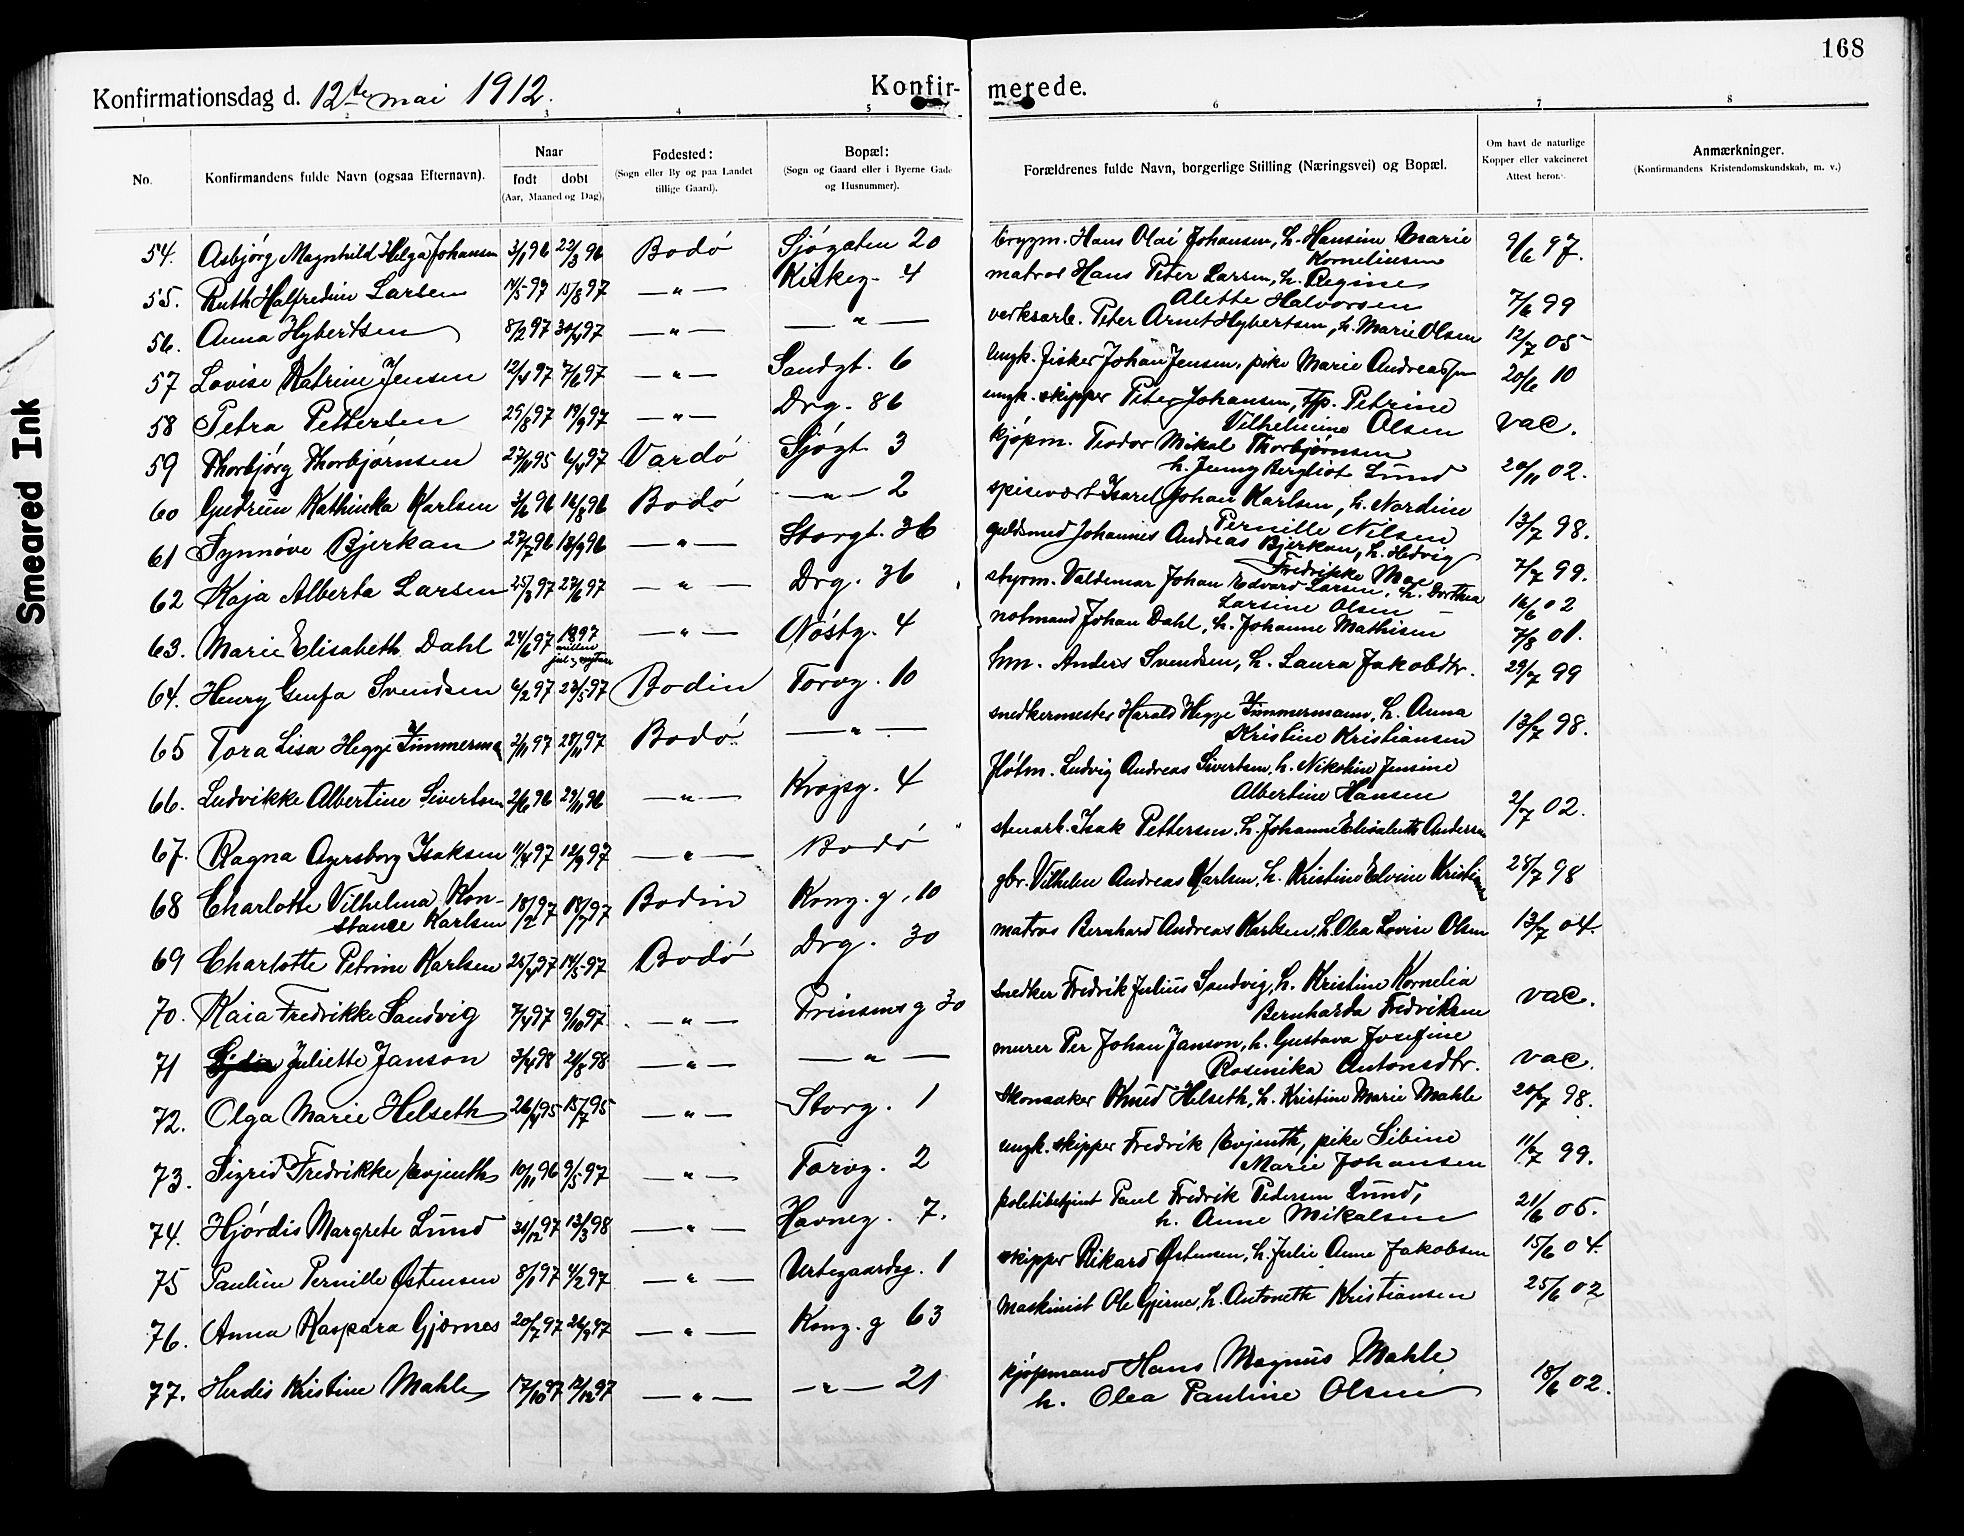 168
Smeared Ink
Konfirmationsdag d. 12te mai 1912. Konfir- merede.
1 2 3 4 5 6 7 8
No. Konfirmandens fulde Navn (ogsaa Efternavn). Naar født døbt (Aar, Maaned og Dag). Fødested: (Sogn eller By og paa Landet tillige Gaard). Bopæl: (Sogn og Gaard eller i Byerne Gade og Husnummer). Forældrenes fulde Navn, borgerlige Stilling (Næringsvei) og Bopæl. Om havt de naturlige Kopper eller vakcineret Attest herom. Anmærkninger. (Konfirmandens Kristendomskundskab, m. v.)
54. Asbjørg Magnhild Helga Johansen 3/1 96 22/3 96 Bodó Sjógaten 20 brygm. Hans Olai Johansen, h. Hansine Marie Korneliusen 9/6 97.
55. Ruth Halfredine Larsen 15/8 97 —„— Kirkeg. 4 matros Hans Peter Larsen, h. Regine Alette Halvorsen 7/6 99
56. Anna Hybertsen 8/2 97 30/4 97 —„— —„— verksarb. Peter Arnet Hybertsen, h. Marie Olsen 12/7 05
57 Lovise Katrine Jensen 12/4 97 7/6 97 —„— Sandgt. 6 ungk. fisker Johan Jensen, pike Marie Andreas 20/6 10
58 Petra Pettersen 25/8 97 19/9 97 —„— Drg. 86 ungk. skipper Peter Johansen, Petrine Vilhelmine Olsen vac.
59 Thorbjørg Thorbjørnsen 27/11 95 6/4 97 Vardó Sjógt 3 kjópm. Teodor Mikal Thorbjørnsen h. Jenny Bergliot Lund 20/11 02.
60 Gudrun Kathinka Karlsen 3/6 96 16/8 96 Bodó —„— 2 spisevært Isarel Johan Karlsen, h. Nordine Pernille Nilsen 13/7 98.
61 Synnóve Bjerkan 27/7 96 13/9 96 —„— Storgt. 36 guldsmed Johannes Andreas Bjerkan, h. Hedvig Fredrikke Moe 7/7 99.
62 Kaja Alberta Larsen 25/3 97 27/6 97 —„— Drg. 36 styrm. Valdemar Johan Edvard Larsen, h. Dorthea Larsine Olsen 16/6 02
63. Marie Elisabeth Dahl 24/6 97 1897 mellem —„— Nóstg. 4 notmand Johan Dahl, h. Johanne Mathisen 7/8 01.
64. Henry Genfa Svendsen 6/2 97 23/5 97 Bodin Torvg. 10 hm. Anders Svendsen, h. Laura Jakobdtr. 29/7 99
65 Tora Lisa Hegge Zimmerma 2/11 97 28/11 97 Bodó —„— snedkermester Harald Hegge Zimmermann, h. Anna Kristine Kristiansen 13/7 98.
66. Ludvikke Albertine Sivertsen 2/6 96 29/11 96 —„— Krogsg. 4 flótm. Ludvig Andreas Sivertsen, h. Nikoline Jensine Albertine Hansen 2/7 02.
67. Ragna Agersborg Isaksen 11/4 97 12/9 97 —„— Bodó stenarb. Isak Pettersen, h. Johanne Elisabeth Andersen
68 Charlotte Vilhelma Konstance Karlsen 18/2 97 18/7 97 Bodin Kong. g. 10 gbr. Vilhelm Andreas Karlsen, h. Kristine Elvine Kristi 28/7 98
69 Charlotte Petrine Karlsen 25/4 97 14/5 97 Bodó Drg. 30 matros Bernhard Andreas Karlsen, h. Olea Lovise Olsen 13/7 04.
70. Kaia Fredrikke Sandvig 7/4 97 9/10 97. —„— Prinsensg 30 snedker Fredrik Julius Sandvig, h. Kristine Kornelia Bernharda Fredriksen vac.
71 Juliette Janson 3/4 98 21/8 98 —„— —„— murer Per Johan Janson, h. Gustava Josefine Rosinika Antonsdtr. vac.
72. Olga Marie Helseth 26/4 95 15/7 95 —„— Storg. 1 skomaker Knud Helseth, h. Kristine Marie Mahle 20/7 98.
73. Sigrid Fredrikke Evjenth 10/11 96 9/5 97 —„— Torvg. 2 ungk. skipper Fredrik Evjenth, pike Sibine Marie Johansen 11/7 99.
74. Hjórdis Margrete Lund 31/12 97 13/3 98 —„— Havneg. 7. politibetjent Paul Fredrik Pedersen Lund, h. Anne Mikalsen 21/6 05.
75 Pauline Pernille Østensen 8/1 97 4/2 97 —„— Urtegaardsg. 1 skipper Rikard Østensen, h. Julie Anne Jakobsen 15/6 04.
76. Anna Kaspara Gjærnes 20/7 97 26/9 97 —„— Kong. g 63 maskinist Ole Gjernes, h. Antonette Kristiansen 25/6 02
77. Herdis Kristine Mahle 17/10 97 12/12 97 —„— —„— 21 kjópmand Hans Magnus Mahle h. Olea Pauline Olsen 18/6 02.